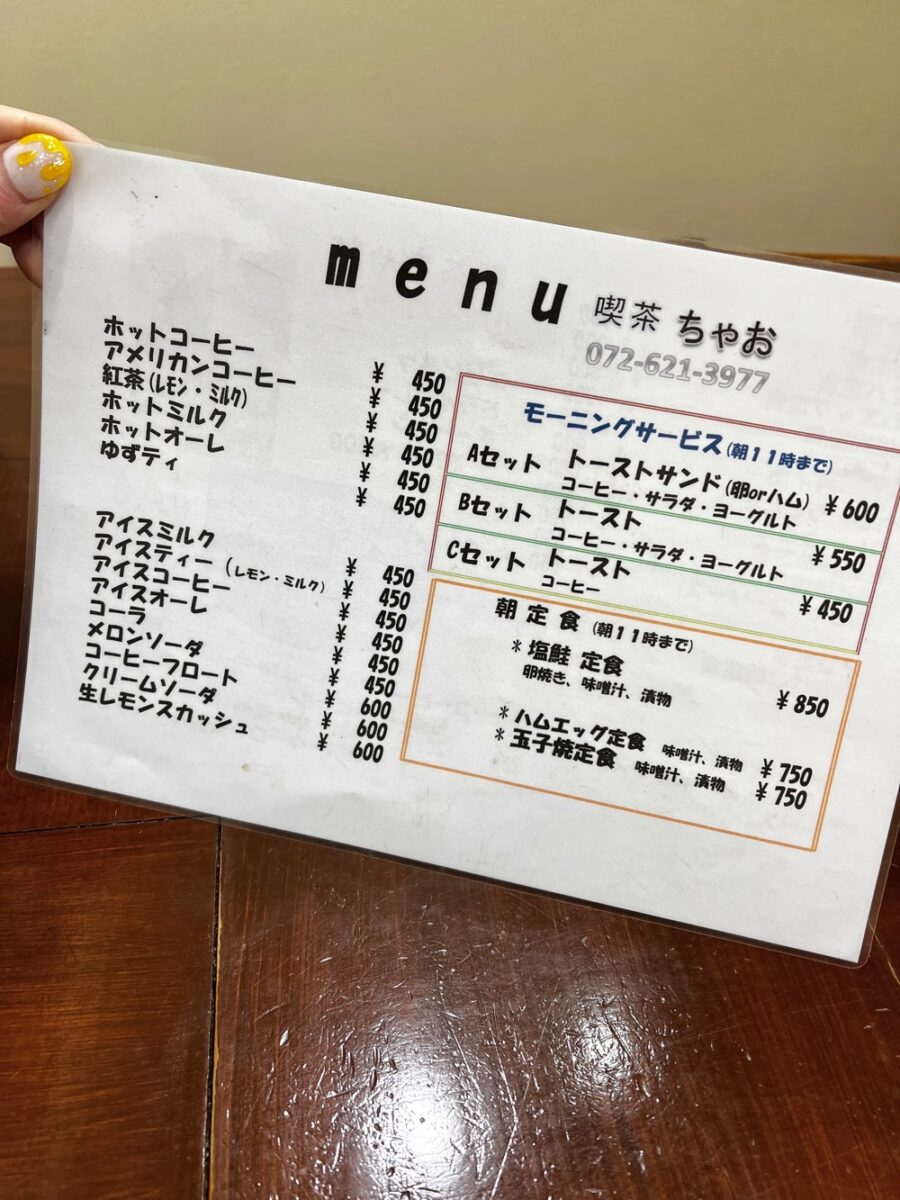 menu 喫茶 ちゃお
072-621-3977
ホットコーヒー ¥ 450
アメリカンコーヒー ¥ 450
紅茶(レモン・ミルク) ¥ 450
ホットミルク ¥ 450
ホットオーレ ¥ 450
ゆずティ ¥ 450
アイスミルク ¥ 450
アイスティー (レモン・ミルク) ¥ 450
アイスコーヒー ¥ 450
アイスオーレ ¥ 450
コーラ ¥ 450
メロンソーダ ¥ 450
コーヒーフロート ¥ 600
クリームソーダ ¥ 600
生レモンスカッシュ ¥ 600
モーニングサービス(朝11時まで)
Aセット トーストサンド(卵orハム) ¥600
コーヒー・サラダ・ヨーグルト
Bセット トースト ¥550
コーヒー・サラダ・ヨーグルト
Cセット トースト ¥450
コーヒー
朝 定 食 (朝11時まで)
*塩鮭 定食 ¥850
卵焼き、味噌汁、漬物
*ハムエッグ定食 味噌汁、漬物 ¥750
*玉子焼定食 味噌汁、漬物 ¥750